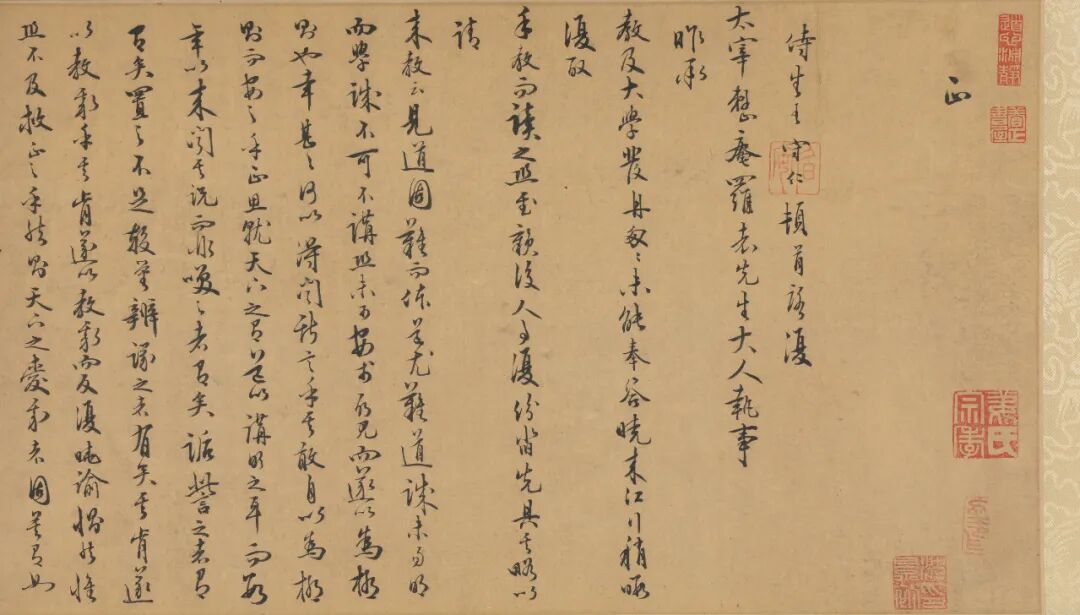 正
侍生王守仁頓首啟復
太宰整庵羅老先生大人執事
昨承
教及大學發舟匆々未能奉答曉來江行稍暇
復取
手教而讀之恐至贛後人事復紛沓先具其略以
請
來教云見道固難而體道尤難道誠未易明
而學誠不可不講恐未可安於所見而遂以為極
則也幸甚々何以得聞斯言乎其敢自以為極
則而安之乎正思就天下之有道以講明之耳而數
年以來聞其説而非咲之者有矣詬訾之者有
矣置之不足較量辨議之者有矣其肯遂
以教我乎其肯遂以教我而反復曉諭惻然惟
恐不及救正之乎然則天下之愛我者固莫有如